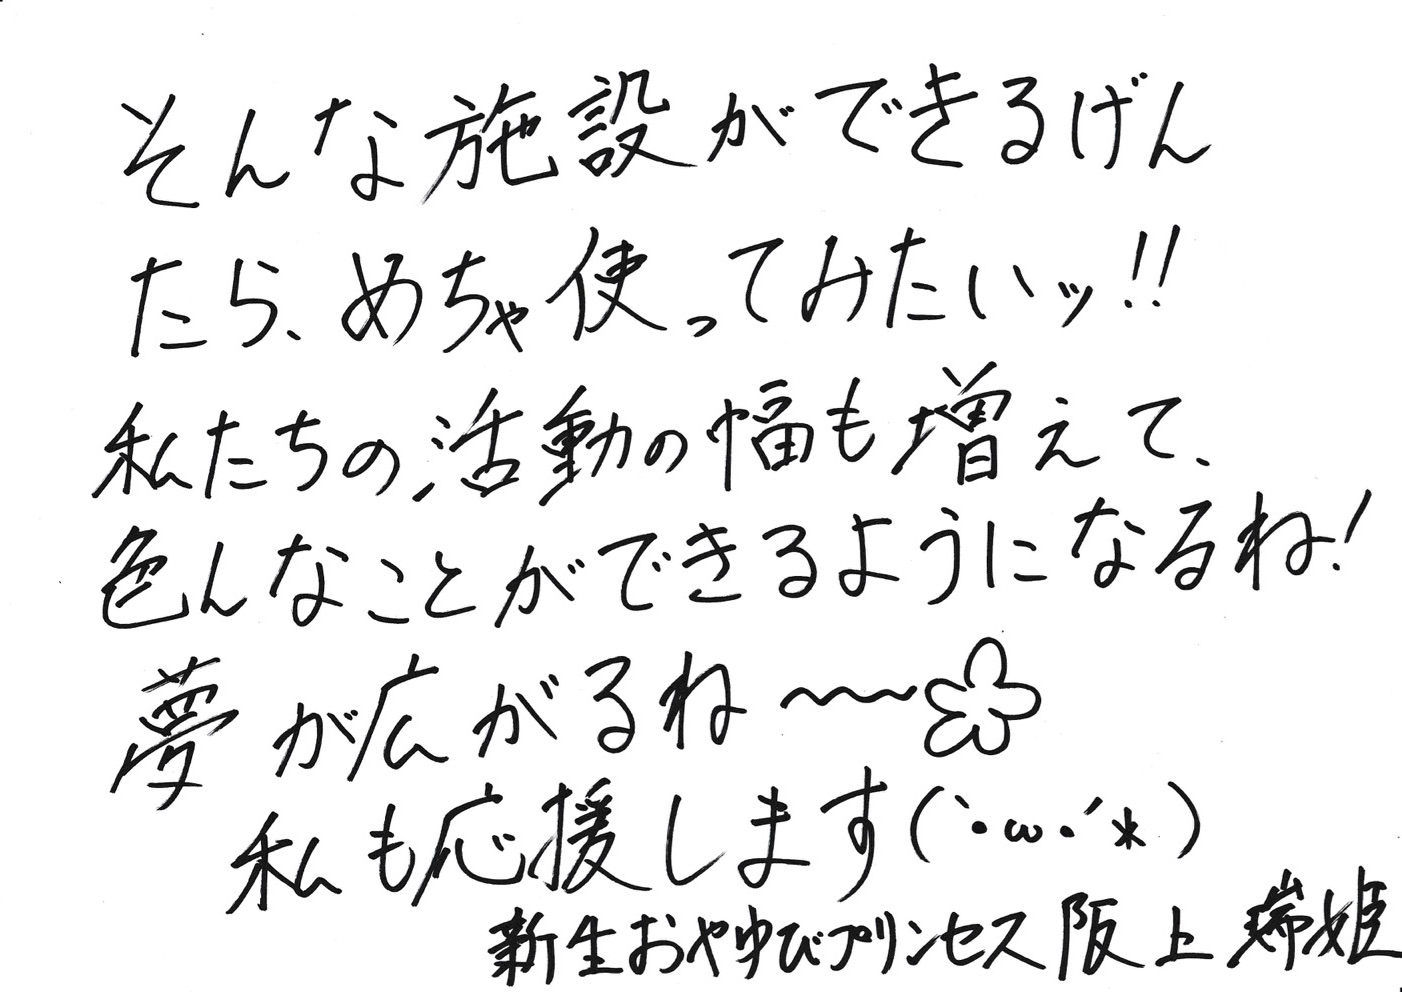 そんな施設ができるげん
たら、めちゃ使ってみたいッ!!
私たちの活動の幅も増えて、
色んなことができるようになるね!
夢が広がるね〜〜
私も応援します(`・ω・´*)
新生おやゆびプリンセス 阪上 瑞姫